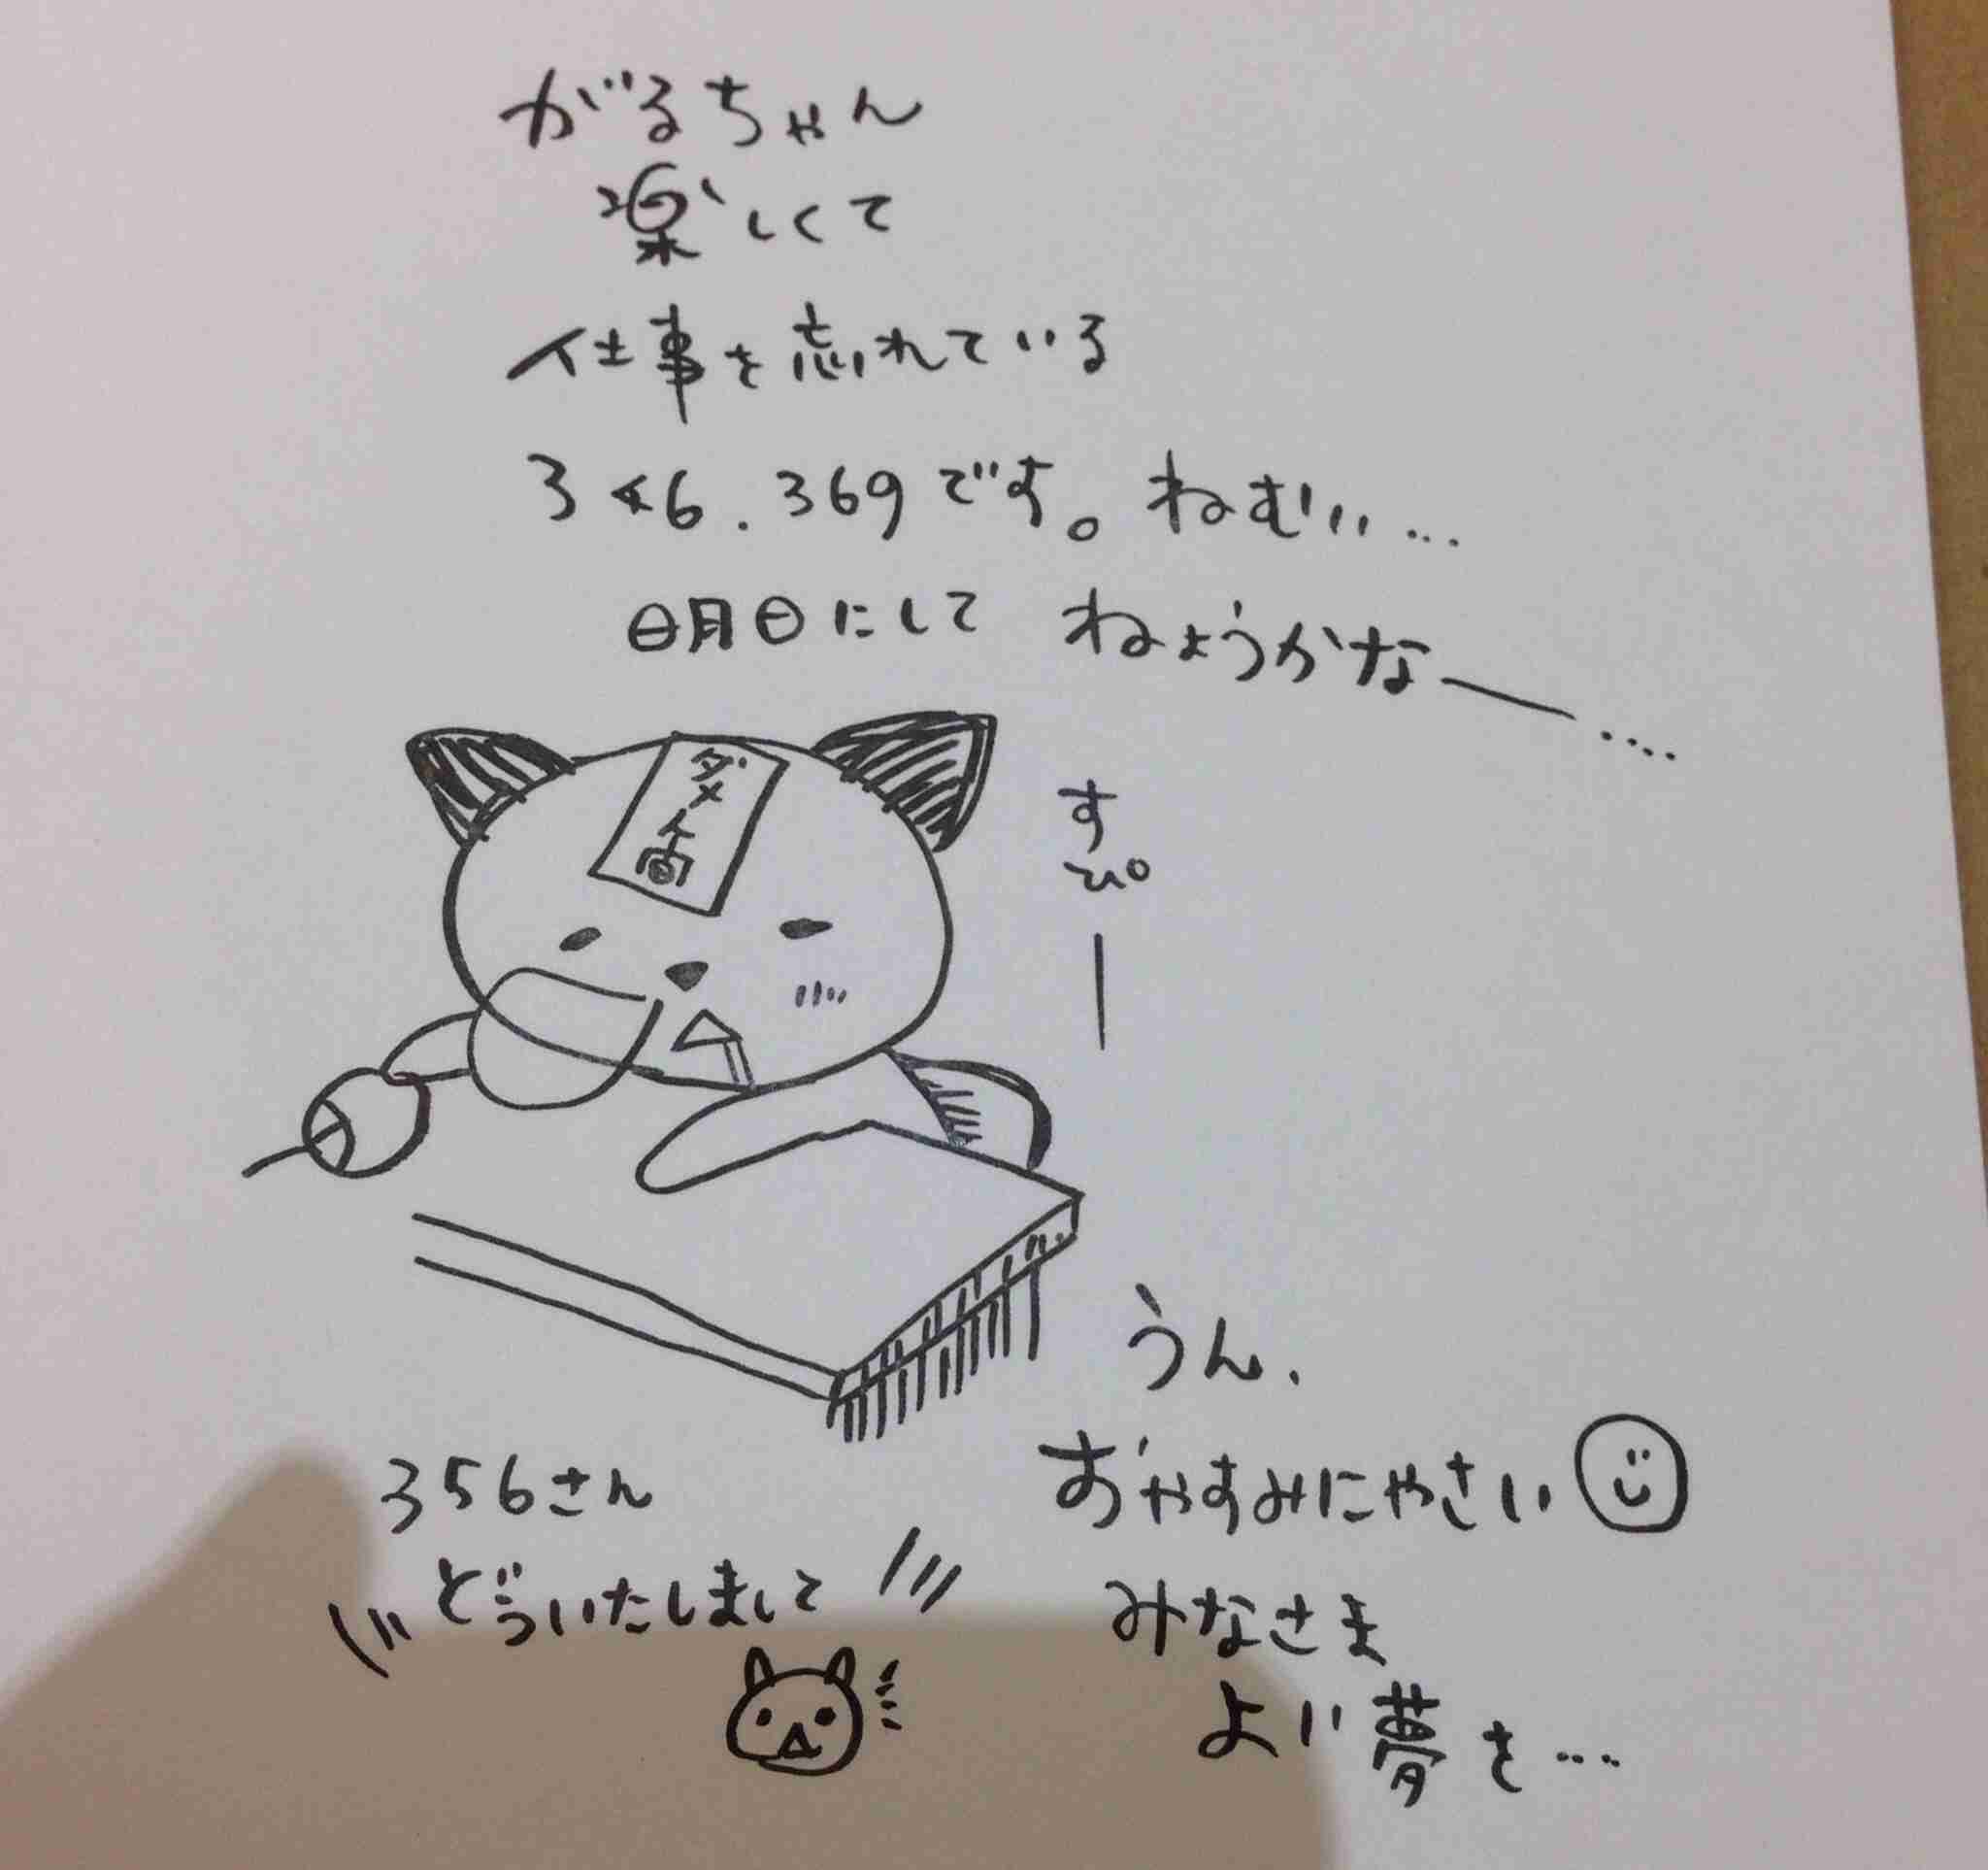 がるちゃん
楽しくて
仕事を忘れている
346.369です。ねむい...
明日にして ねようかなー....
ダメ人間
すぴー
うん、
おやすみにゃさい
356さん
どういたしまして
みなさま
よい夢を...